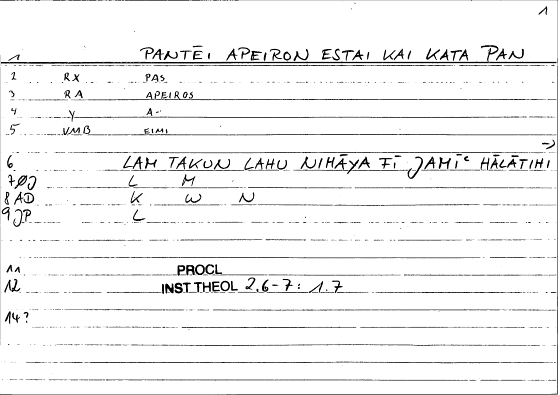 1
1 PANTĒI APEIRON ESTAI KAI KATA PAN
2 RX PAS
3 RA APEIROS
4 Y A-
5 VMB EIMI
→
6 LAM TAKUN LAHU NIHĀYA FĪ JAMĪᶜ HĀLĀTIHI
7 ØJ L M
8 AD K W N
9 JP L
11 PROCL
12 INST THEOL 2.6-7: 1.7
14?